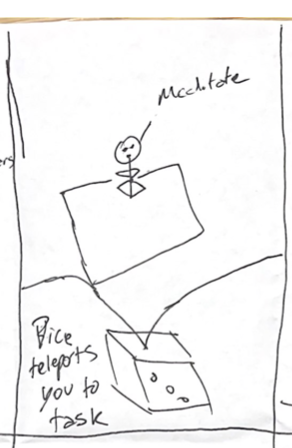 Meditate
ers
Dice
teleports
you to
task